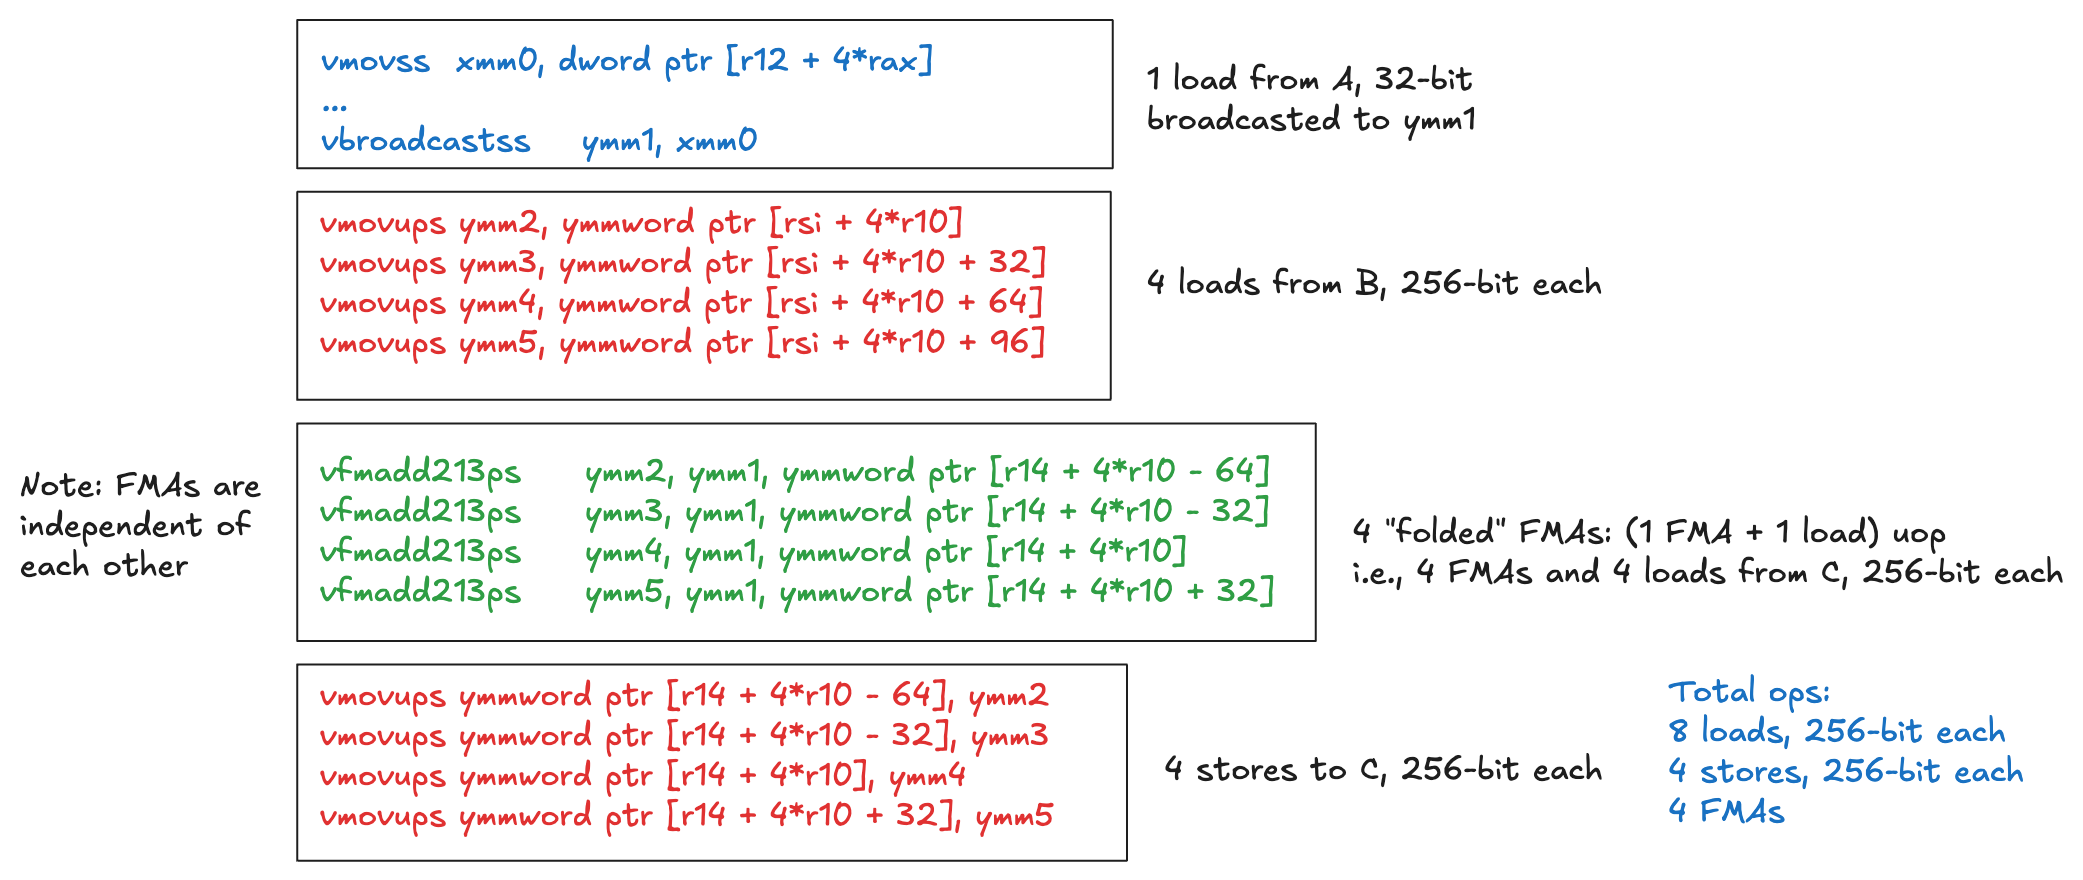 vmovss xmm0, dword ptr [r12 + 4*rax]
...
vbroadcastss ymm1, xmm0
1 load from A, 32-bit
broadcasted to ymm1
vmovups ymm2, ymmword ptr [rsi + 4*r10]
vmovups ymm3, ymmword ptr [rsi + 4*r10 + 32]
vmovups ymm4, ymmword ptr [rsi + 4*r10 + 64]
vmovups ymm5, ymmword ptr [rsi + 4*r10 + 96]
4 loads from B, 256-bit each
Note: FMAs are
independent of
each other
vfmadd213ps ymm2, ymm1, ymmword ptr [r14 + 4*r10 - 64]
vfmadd213ps ymm3, ymm1, ymmword ptr [r14 + 4*r10 - 32]
vfmadd213ps ymm4, ymm1, ymmword ptr [r14 + 4*r10]
vfmadd213ps ymm5, ymm1, ymmword ptr [r14 + 4*r10 + 32]
4 "folded" FMAs: (1 FMA + 1 load) uop
i.e., 4 FMAs and 4 loads from C, 256-bit each
vmovups ymmword ptr [r14 + 4*r10 - 64], ymm2
vmovups ymmword ptr [r14 + 4*r10 - 32], ymm3
vmovups ymmword ptr [r14 + 4*r10], ymm4
vmovups ymmword ptr [r14 + 4*r10 + 32], ymm5
4 stores to C, 256-bit each
Total ops:
8 loads, 256-bit each
4 stores, 256-bit each
4 FMAs